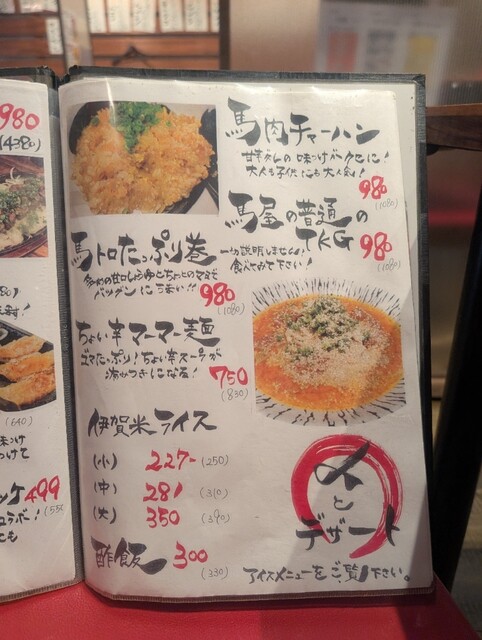 980
(4380)
(640)
499
馬肉チャーハン
甘辛ダレの味つけがクセに!
大人も子供にも大人気!
980
(1080)
馬屋の普通の
TKG
一切説明しません!
食べてみて下さい!
980
(1080)
馬トロたっぷり巻
多めの甘口しょうゆとちょっとのワサビで
バツグンにうまい!!
980
(1080)
ちょい辛マーマー麺
ゴマたっぷり!ちょい辛スープが
病みつきになる!
750
(830)
伊賀米ライス
(小) 227- (250)
(中) 281 (310)
(大) 350 (390)
酢飯 300
(330)
〆と
デザート
アイスメニューをご覧下さい。